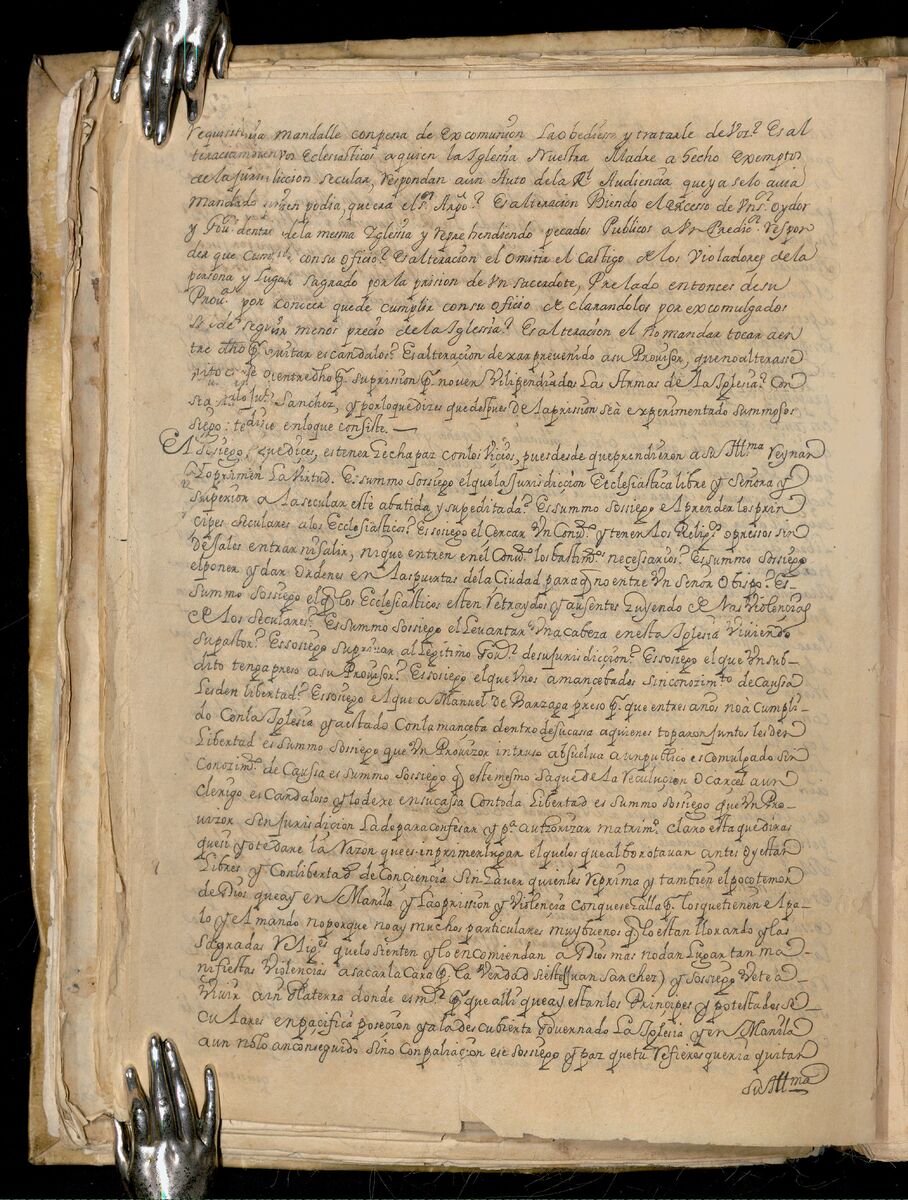 requisitoria mandalle con pena de excomunion La obediesse y tratarle de Vos? Es al
teracion Eclesiasticos a quien la Iglesia Nuestra Madre a hecho exemptos
de la Jurisdiccion secular, respondan a un Auto de la Rl Audiencia que ya se lo auia
mandado quien podia, que era el sr Arpo? Es alteracion Viendo el excesso de Vn sr oydor
y Gour dentro de la mesma Iglesia y reprehendiendo pecados Publicos a Vn Predicr respon
der que con su oficio? Es alteracion el omitir el Castigo de los Violadores de la
persona y Lugar Sagrado por la prision de Vn sacerdote, Prelado entonces de su
Prou por conocer que de cumplir con su oficio declarandolos por excomulgados
se seguir menos precio de la Iglesia? Es alteracion el no mandar tocar a en
tre dho pr quitar escandalos? Es alteracion dexar prevenido a su Prouisor, que no alterasse
ni entredho pr su prission pr no ver Vilipendiados Las Armas de La Iglesia? Con
Sanchez, y por lo que dizes que despues de la prission se a experimentado summo sos
siego: te dire en lo que consiste.—
El Sosiego, que dices, es tener fecha paz con los Vicios, pues desde que prendieron a su Illma reynan
oprimen La Virtud. Es summo sossiego el que la Jurisdiccion Ecclesiastica libre y Señora y
superior a la secular esté abatida y supeditada? Es summo sossiego el prender los prin
cipes seculares a los Ecclesiasticos? Es sosiego el Cercar Vn Conuto y tener a los Religos opressos sin
dejales entrar ni salir, ni que entren en el Conuto los bastimtos necessarios? Es summo sossiego
el poner y dar ordenes en Las puertas de la Ciudad para q no entre Vn señor obispo? Es
summo sossiego el q los Ecclesiasticos esten retraydos y ausentes huyendo de Vras Violencias
de los Seculares? Es summo sossiego el Levantar Vna Cabeza en esta Iglesia Viviendo
su pastor? Es sosiego al Legitimo Gour de su jurisdiccion? Es sosiego el que Vn sub-
dito tenga preso a su Prouisor? Es sosiego el que Vnos amancebados sin conozimto de caussa
Les den libertad? Es sosiego el que a Manuel de Barzaga preso pr que en tres años no a cumpli-
do con la Iglesia y a estado Con la manceba dentro de su cassa a quienes toparon juntos les den
Libertad es summo sossiego que Vn Prouizor intruso absuelva a un publico escomulgado sin
Conozimto de Caussa es summo sossiego q este mesmo saque de La reculucion o carcel a un
Clerigo escandaloso y lo dexe en su cassa Con toda Libertad es summo sossiego que Vn Pro-
uizor sin jurisdicion La de para confesar y pa autorizar matrimos Claro esta que diras
que si y o te dare la razon que es inprimen el que los que alborotauan antes oy estan
Libres y Con libertad de Conciencia sin haver quien les reprima y tambien el poco temor
de Dios que ay en Manila y La oprission y Violencia con que se halla pr los que tienen el pa-
lo y el mando no porque no ay muchos particulares muy buenos q lo estan llorando y las
Sagradas Religes que lo sienten y lo encomiendan a Dios mas no dan Lugar tan ma-
nifiestas Violencias a sacar la Cara pr la Verdad si este (Juan Sanchez) y sossiego Vete a
Vivir a Inglaterra donde es mr pr que alli que ay estan los Principes y potestados se-
culares en pacifica posecion y a la descubierta governado La Iglesia y en Manila
aun no lo an conseguido sino con paliacion ese sossiego y paz que tu refieres queria quitar
su Illma